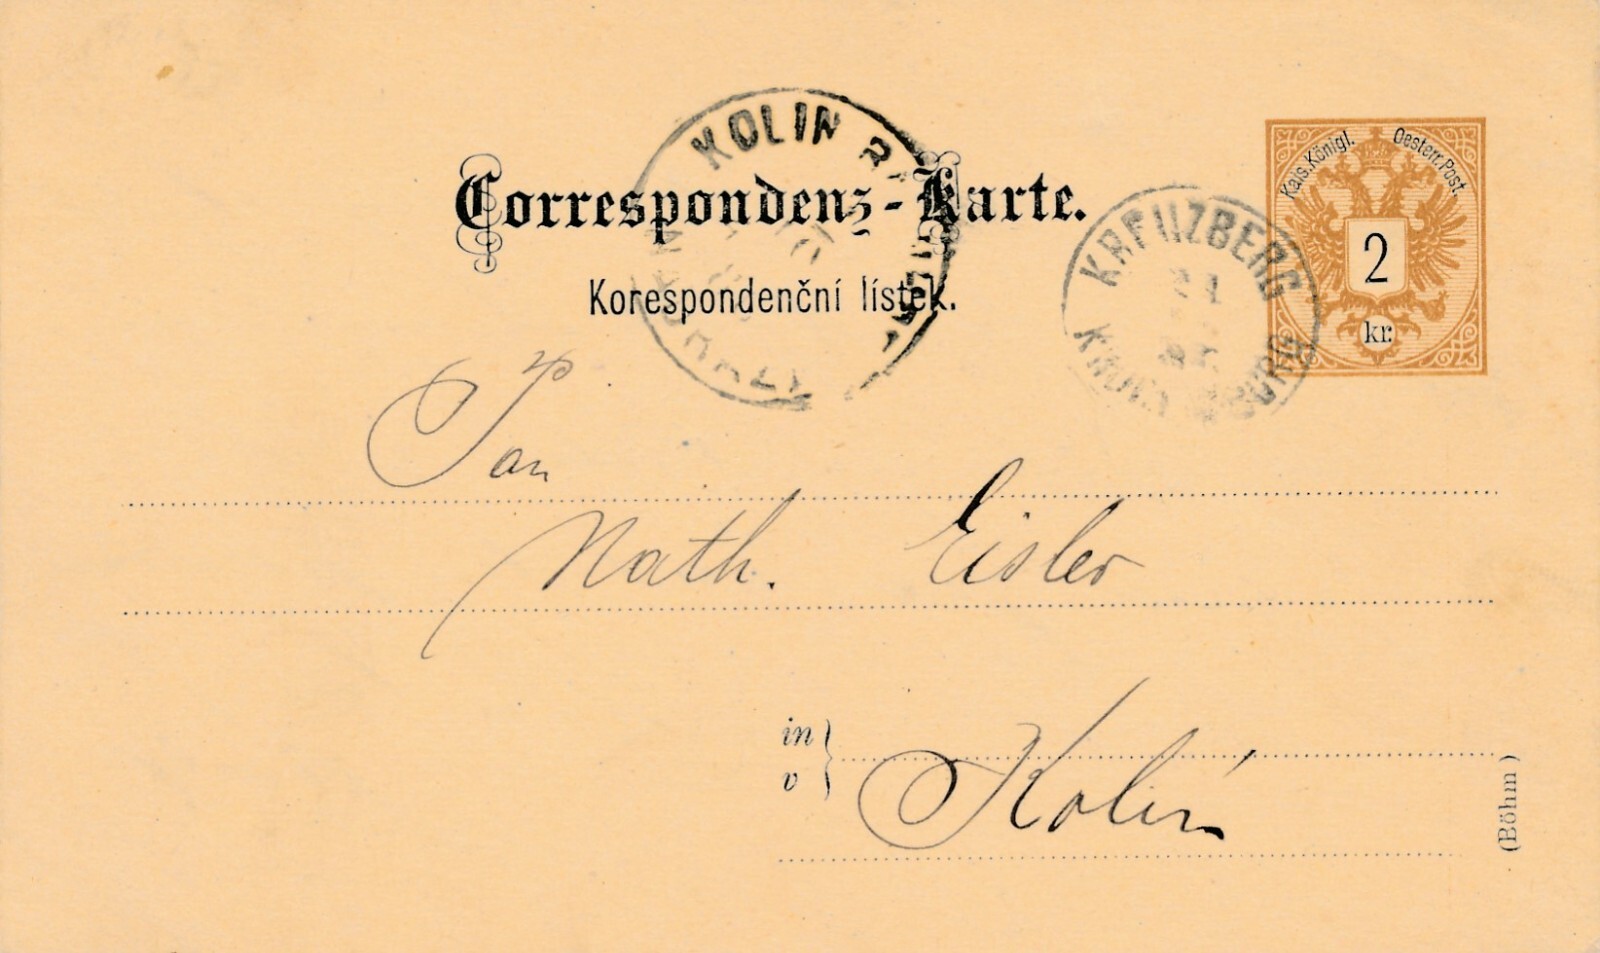 Correspondenz-Karte.
Korespondenční lístek.
Kais. Königl. Oesterr. Post.
2
kr.
KOLIN
KREUZBERG
Pan
Nath. Eisler
in
v
Kolín
(Böhm)